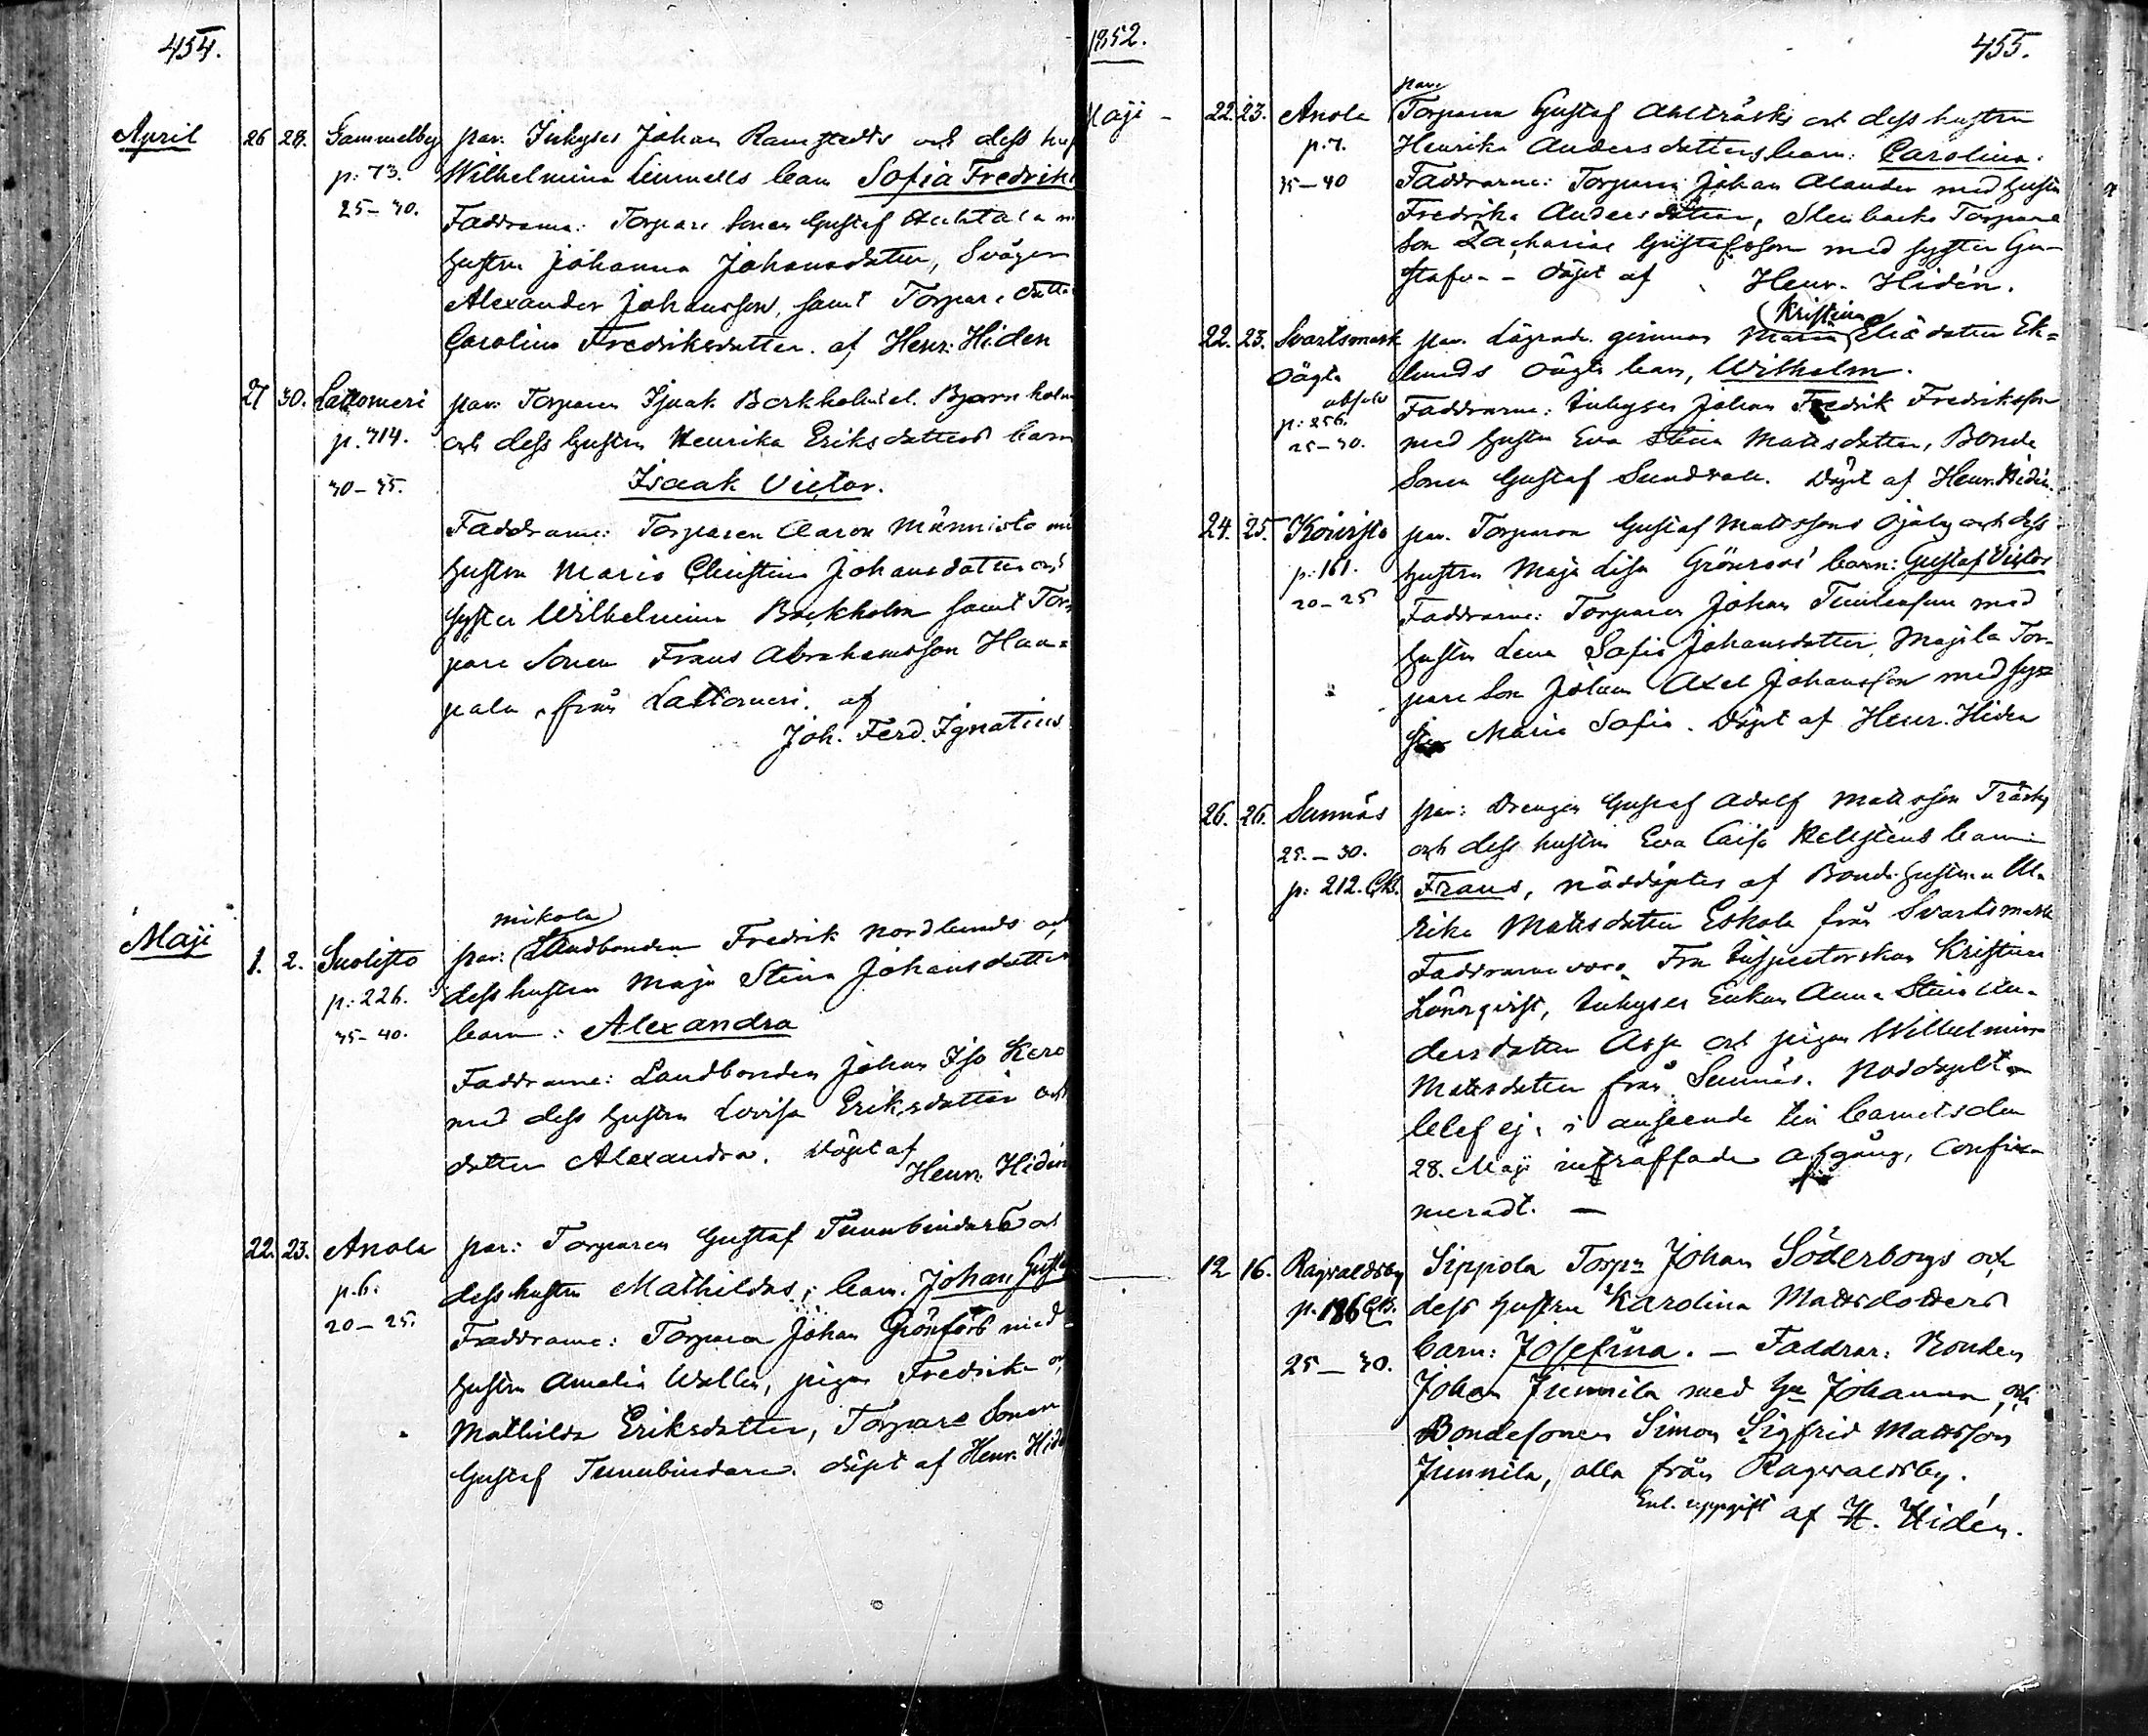 454.
April 26 28. Gammelby par. Inhyses Johan Ramstedts och dess
p: 73. Wilhelmina barn Sofia Fredrik
25–30. Faddrarne: Torpare Sonen Gustaf
hustru Johanna Johansdotter, Svägern
Alexander Johansson, samt Torpare dotter
Carolina Fredriksdotter. af Henr: Hiden
27 30. Lattomeri par: Torparen Isaak Borkholm el. Bjornholm
p. 314. och dess hustru Henrika Eriksdotters barn
30–35. Isaak Victor.
Faddrarne: Torparen Aaron Männistö
hustru Maria Christina Johansdotter och
syster Wilhelmina Borkholm samt Tor-
pare Sonen Frans Abrahamsson Haa-
pala från Lattomeri. af
Joh. Ferd. Ignatius
mikola
Maji 1. 2. Suolisto par: Landbonden Fredrik Nordlunds och
p: 226. dess hustru Maja Stina Johansdotter
35–40. barn: Alexandra
Faddrarne: Landbonden Johan Iso Kero
med dess hustru Lovisa Eriksdotter och
dotter Alexandra. Döpt af
Henr. Hidén
22. 23. Anola par: Torparen Gustaf Tunnbindars och
p. 6. dess hustru Mathildas, barn. Johan
20–25. Faddrarne: Torparen Johan Grönfors med
hustru Amalia Wallin, pigan Fredrika
Mathilda Eriksdotter, Torpare Sonen
Gustaf Tunnbindare. döpt af Henr. Hidé
1852. 455.
par.
Maji – 22 23. Anola Torparen Gustaf Ahlträsks och dess hustru
p. 7. Henrika Andersdotters barn: Carolina.
35–40 Faddrarne: Torparen Johan Alander med hustru
Fredrika Andersdotter, Stenbacks Torpare
Son Zacharias Gustafsson med syster Gu-
stafva – döpt af Henr. Hidén.
Kristina
22. 23. Svartsmark par. Lägrade qvinnan Maria Eliædotter Ek=
Oägta lunds Oägta barn, Wilhelm.
p: 256. Faddrarne: Inhyses Johan Fredrik Fredriksson
25–30. med hustru Eva Stina Mattsdotter, Bonde
Sonen Gustaf Sundvall. Döpt af Henr. Hidén.
24. 25. Koivisto par. Torparen Gustaf Mattssons och dess
p: 161. hustru Maja Lisa Grönroos' barn: Gustaf Victor
20–25 Faddrarne: Torparen Johan med
hustru Lena Sofia Johansdotter, Tor-
pare Son Johan Axel Johansson med sys=
ter Maria Sofia. Döpt af Henr. Hiden
26. 26. Sunnäs par: Drengen Gustaf Adolf Mattsson
25.–30. och dess hustru Eva Caisa Hellstens barn
p: 212. Frans, nöddöptes af Bonde hustrun Ul-
rika Mattsdotter Eskola från Svartsmark
Faddrarne voro Fru Inspectorskan Kristina
Lönnqvist, Inhyses Enkan Anna Stina An-
dersdotter och pigan Wilhelmina
Mattsdotter från Sunnäs. Noddopelten
blef ej, i anseende till barnets den
28. Maji inträffade afgång, confir-
meradt. —
12 16. Ragvaldsby Sippola Torpn Johan Söderborgs och
p. 186 dess hustru Karolina Mattsdotters
25–30. barn: Josefina. – Faddrar: Bonden
Johan Junnila med hu Johanna, och
Bondesonen Simon Sigfrid Mattsson
Junnila, alla från Ragvaldsby.
Enl. uppgift af H. Hidén.